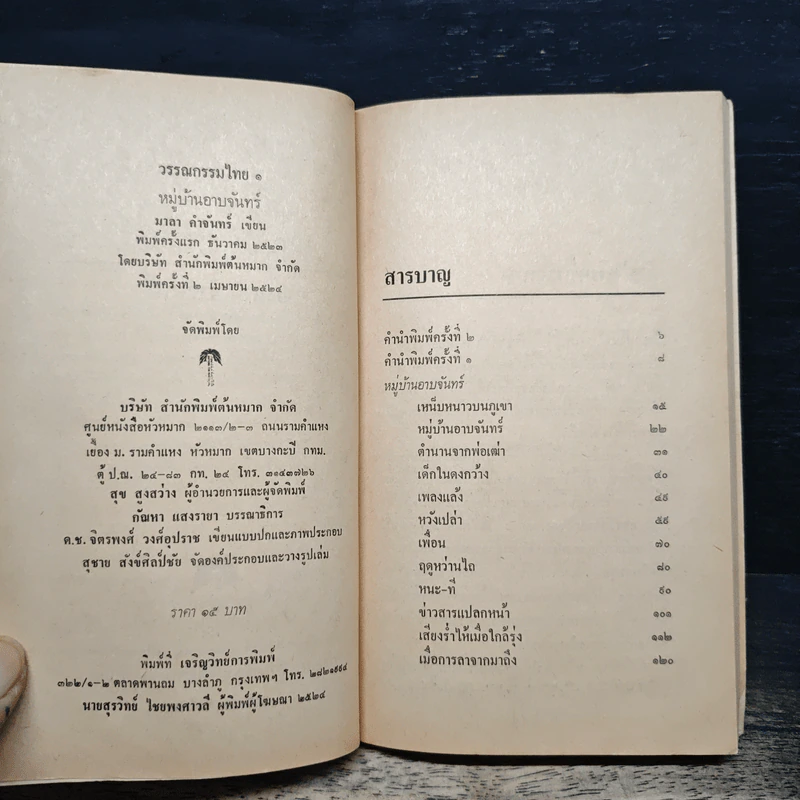 วรรณกรรมไทย ๑
หมู่บ้านอาบจันทร์
มาลา คำจันทร์ เขียน
พิมพ์ครั้งแรก ธันวาคม ๒๕๒๓
โดยบริษัท สำนักพิมพ์ต้นหมาก จำกัด
พิมพ์ครั้งที่ ๒ เมษายน ๒๕๒๔
จัดพิมพ์โดย
บริษัท สำนักพิมพ์ต้นหมาก จำกัด
ศูนย์หนังสือหัวหมาก ๒๑๑๓/๒-๓ ถนนรามคำแหง
เยื้อง ม. รามคำแหง หัวหมาก เขตบางกะปิ กทม.
ตู้ ป.ณ. ๒๔-๘๓ กท. ๒๔ โทร. ๓๑๔๓๗๒๖
สุข สูงสว่าง ผู้อำนวยการและผู้จัดพิมพ์
กัณหา แสงรายา บรรณาธิการ
ด.ช. จิตรพงศ์ วงศ์อุปราช เขียนแบบปกและภาพประกอบ
สุชาย สังข์ศิลป์ชัย จัดองค์ประกอบและวางรูปเล่ม
ราคา ๑๕ บาท
พิมพ์ที่ เจริญวิทย์การพิมพ์
๓๒๒/๑-๒ ตลาดพานถม บางลำภู กรุงเทพฯ โทร. ๒๘๒๑๙๙๔
นายสุรวิทย์ ไชยพงศาวลี ผู้พิมพ์ผู้โฆษณา ๒๕๒๔
สารบาญ
คำนำพิมพ์ครั้งที่ ๒ ๖
คำนำพิมพ์ครั้งที่ ๑ ๘
หมู่บ้านอาบจันทร์
เหน็บหนาวบนภูเขา ๑๕
หมู่บ้านอาบจันทร์ ๒๒
ตำนานจากพ่อเฒ่า ๓๑
เด็กในดงกว้าง ๔๐
เพลงแล้ง ๔๙
หวังเปล่า ๕๙
เพื่อน ๗๐
ฤดูหว่านไถ ๘๐
หนะ-ที ๙๐
ข่าวสารแปลกหน้า ๑๐๑
เสียงร่ำไห้เมื่อใกล้รุ่ง ๑๑๒
เมื่อการลาจากมาถึง ๑๒๐